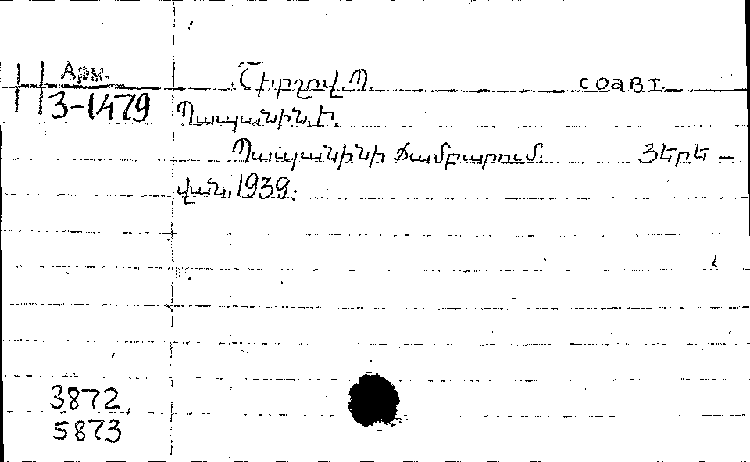 Арм.
3-1479
Շիրշով Պ. соавт.
Պապանին. Ի.
Պապանինի ճամբարում. Յերե-
վան, 1939.
3872,
5873